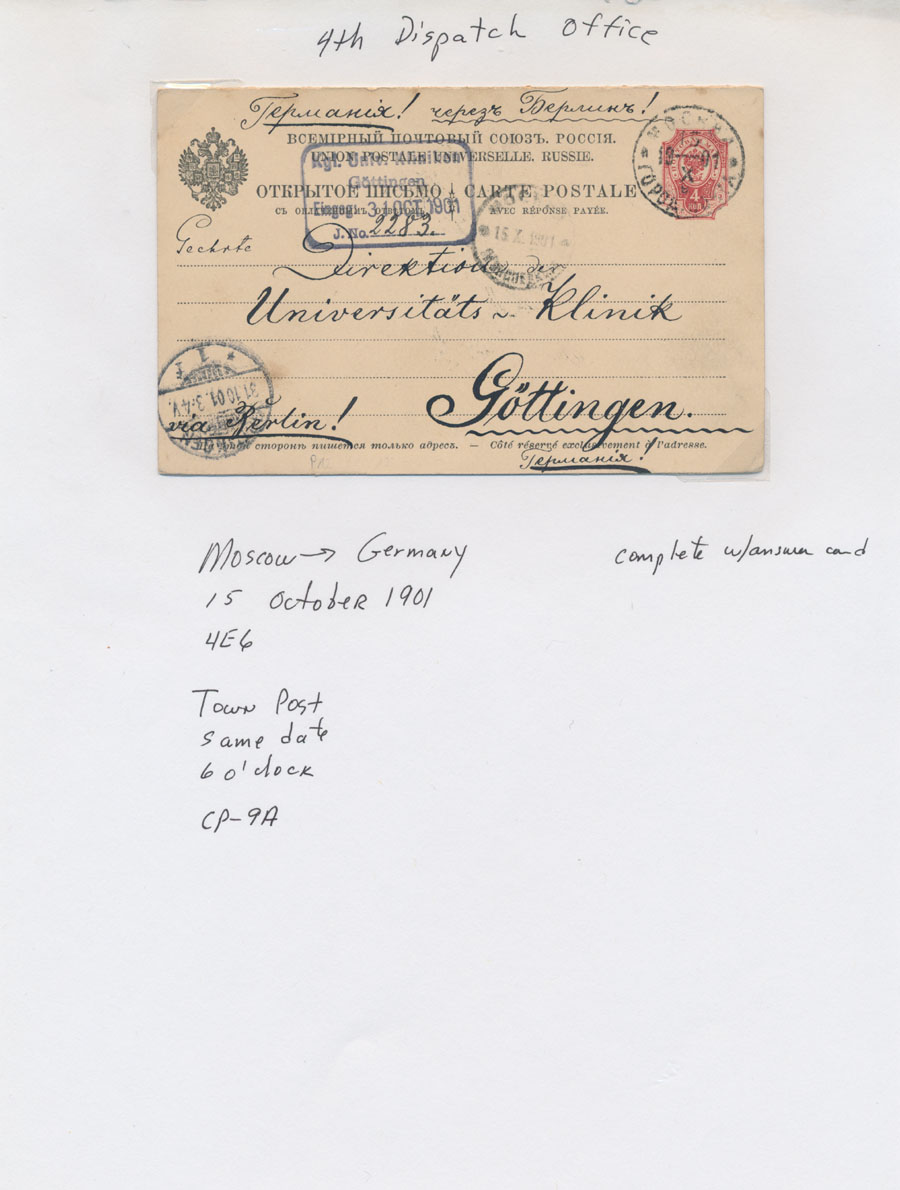 4th Dispatch Office
Германія! черезъ Берлинъ!
ВСЕМІРНЫЙ ПОЧТОВЫЙ СОЮЗЪ. РОССІЯ.
UNION POSTALE UNIVERSELLE. RUSSIE.
ОТКРЫТОЕ ПИСЬМО CARTE POSTALE
СЪ ОПЛАЧЕННЫМЪ ОТВѢТОМЪ AVEC RÉPONSE PAYÉE.
МОСКВА
4 КОП
Kgl. Univ. Klinik
Göttingen
Eingeg. 31 OCT. 1901
J. No. 2283.
15.X.1901
Geehrte
Direktion der
Universitäts - Klinik
Göttingen.
31.10.01. 3-4 V.
via Berlin!
На этой сторонѣ пишется только адресъ. — Côté réservé exclusivement à l'adresse.
Германія!
Moscow → Germany
complete w/answer card
15 October 1901
4E6
Town Post
same date
6 o'clock
CP-9A